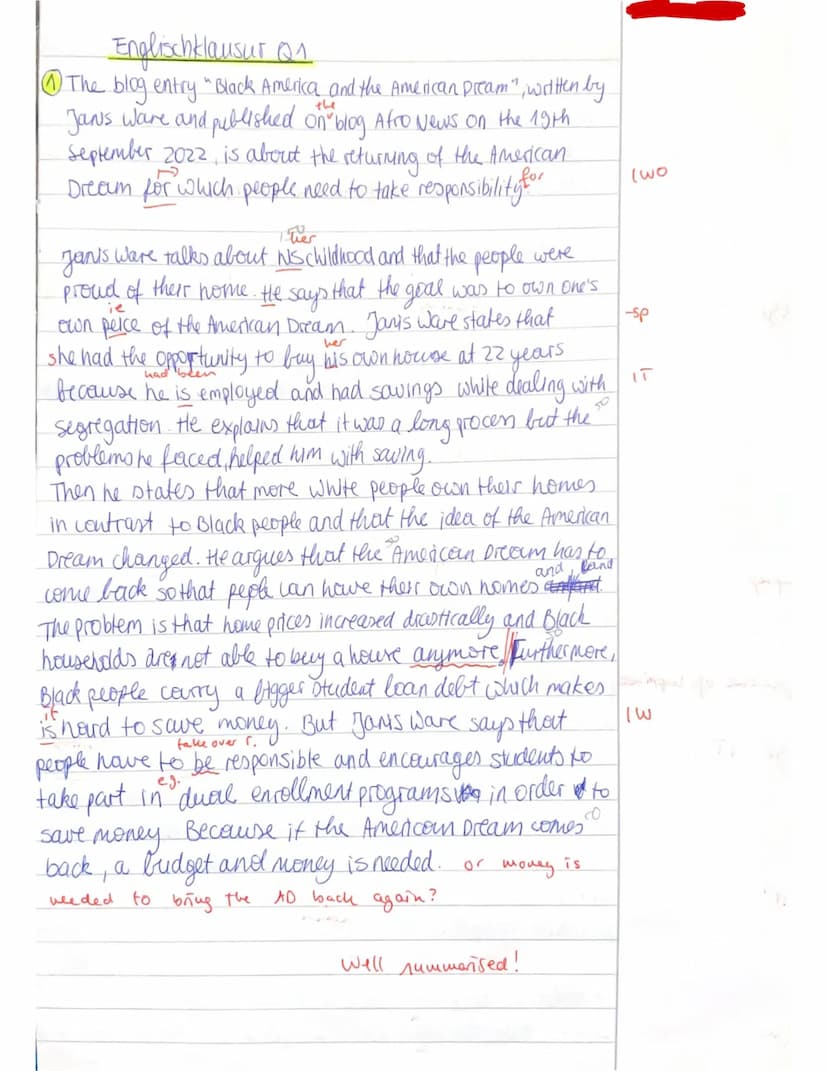 Englischklausur Q1
① The blog entry "Black America and the American Dream", written by
the
Janis Ware and published on blog Afro News on the 19th
September 2022, is about the returning of the American
Dream for which people need to take responsibility for
1 WO
her
Janis Ware talks about his childhood and that the people were
proud of their home. He says that the goal was to own one's
ie
own peice of the American Dream. Janis Ware states that
-sp
her
she had the opportunity to buy his own house at 22 years
had been
because he is employed and had savings while dealing with
1T
segregation. He explains that it was a long process but the
problems he faced, helped him with saving.
Then he states that more white people own their homes
in contrast to Black people and that the idea of the American
Dream changed. He argues that the American Dream has to
and land
come back so that peple can have their own homes
The problem is that home prices increased drastically and Black
households are not able to buy a house anymore. Furthermore,
Black people carry a bigger student loan debt which makes
it
is hard to save money. But Janis Ware says that
1 W
take over r.
people have to be responsible and encourages students to
e.g.
take part in dual enrollment programs in order to
save money. Because if the American Dream comes
back, a budget and money is needed. or money is
needed to bring the AD back again?
Well summarised!